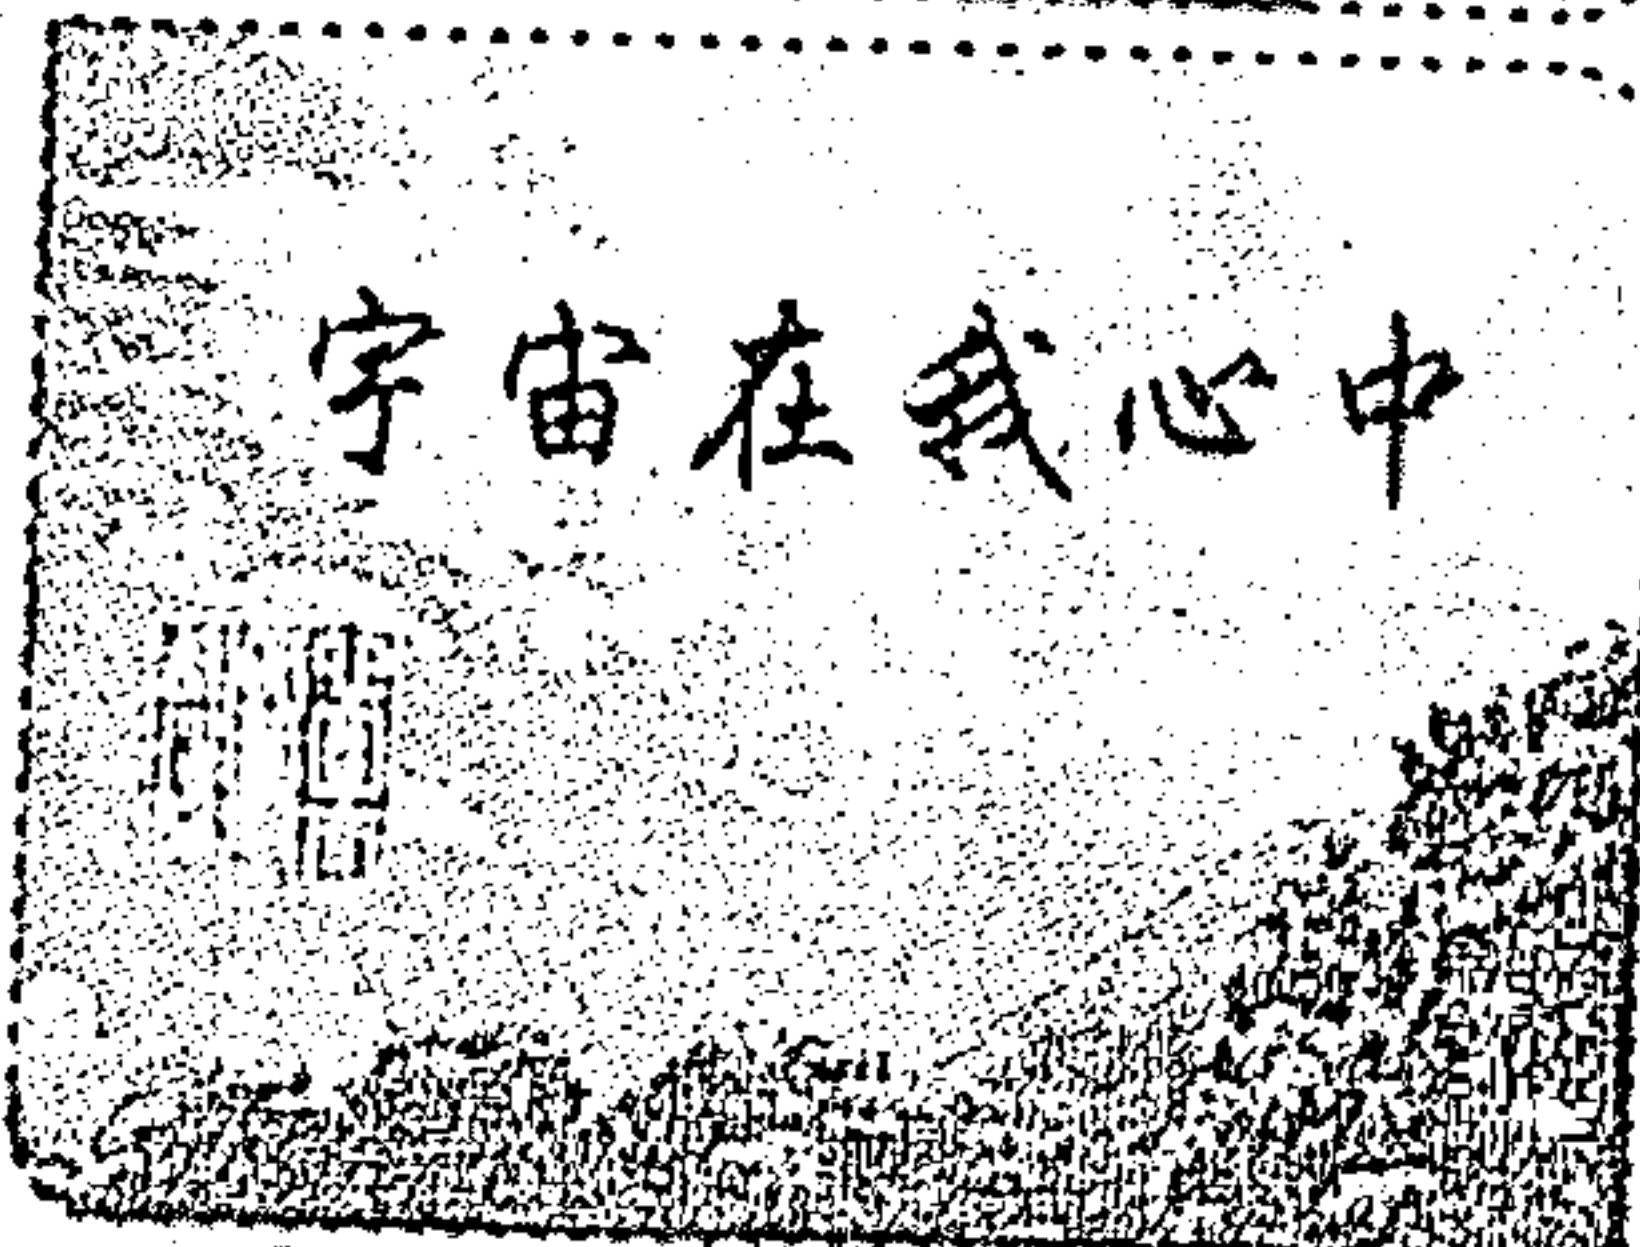 宇宙在我心中